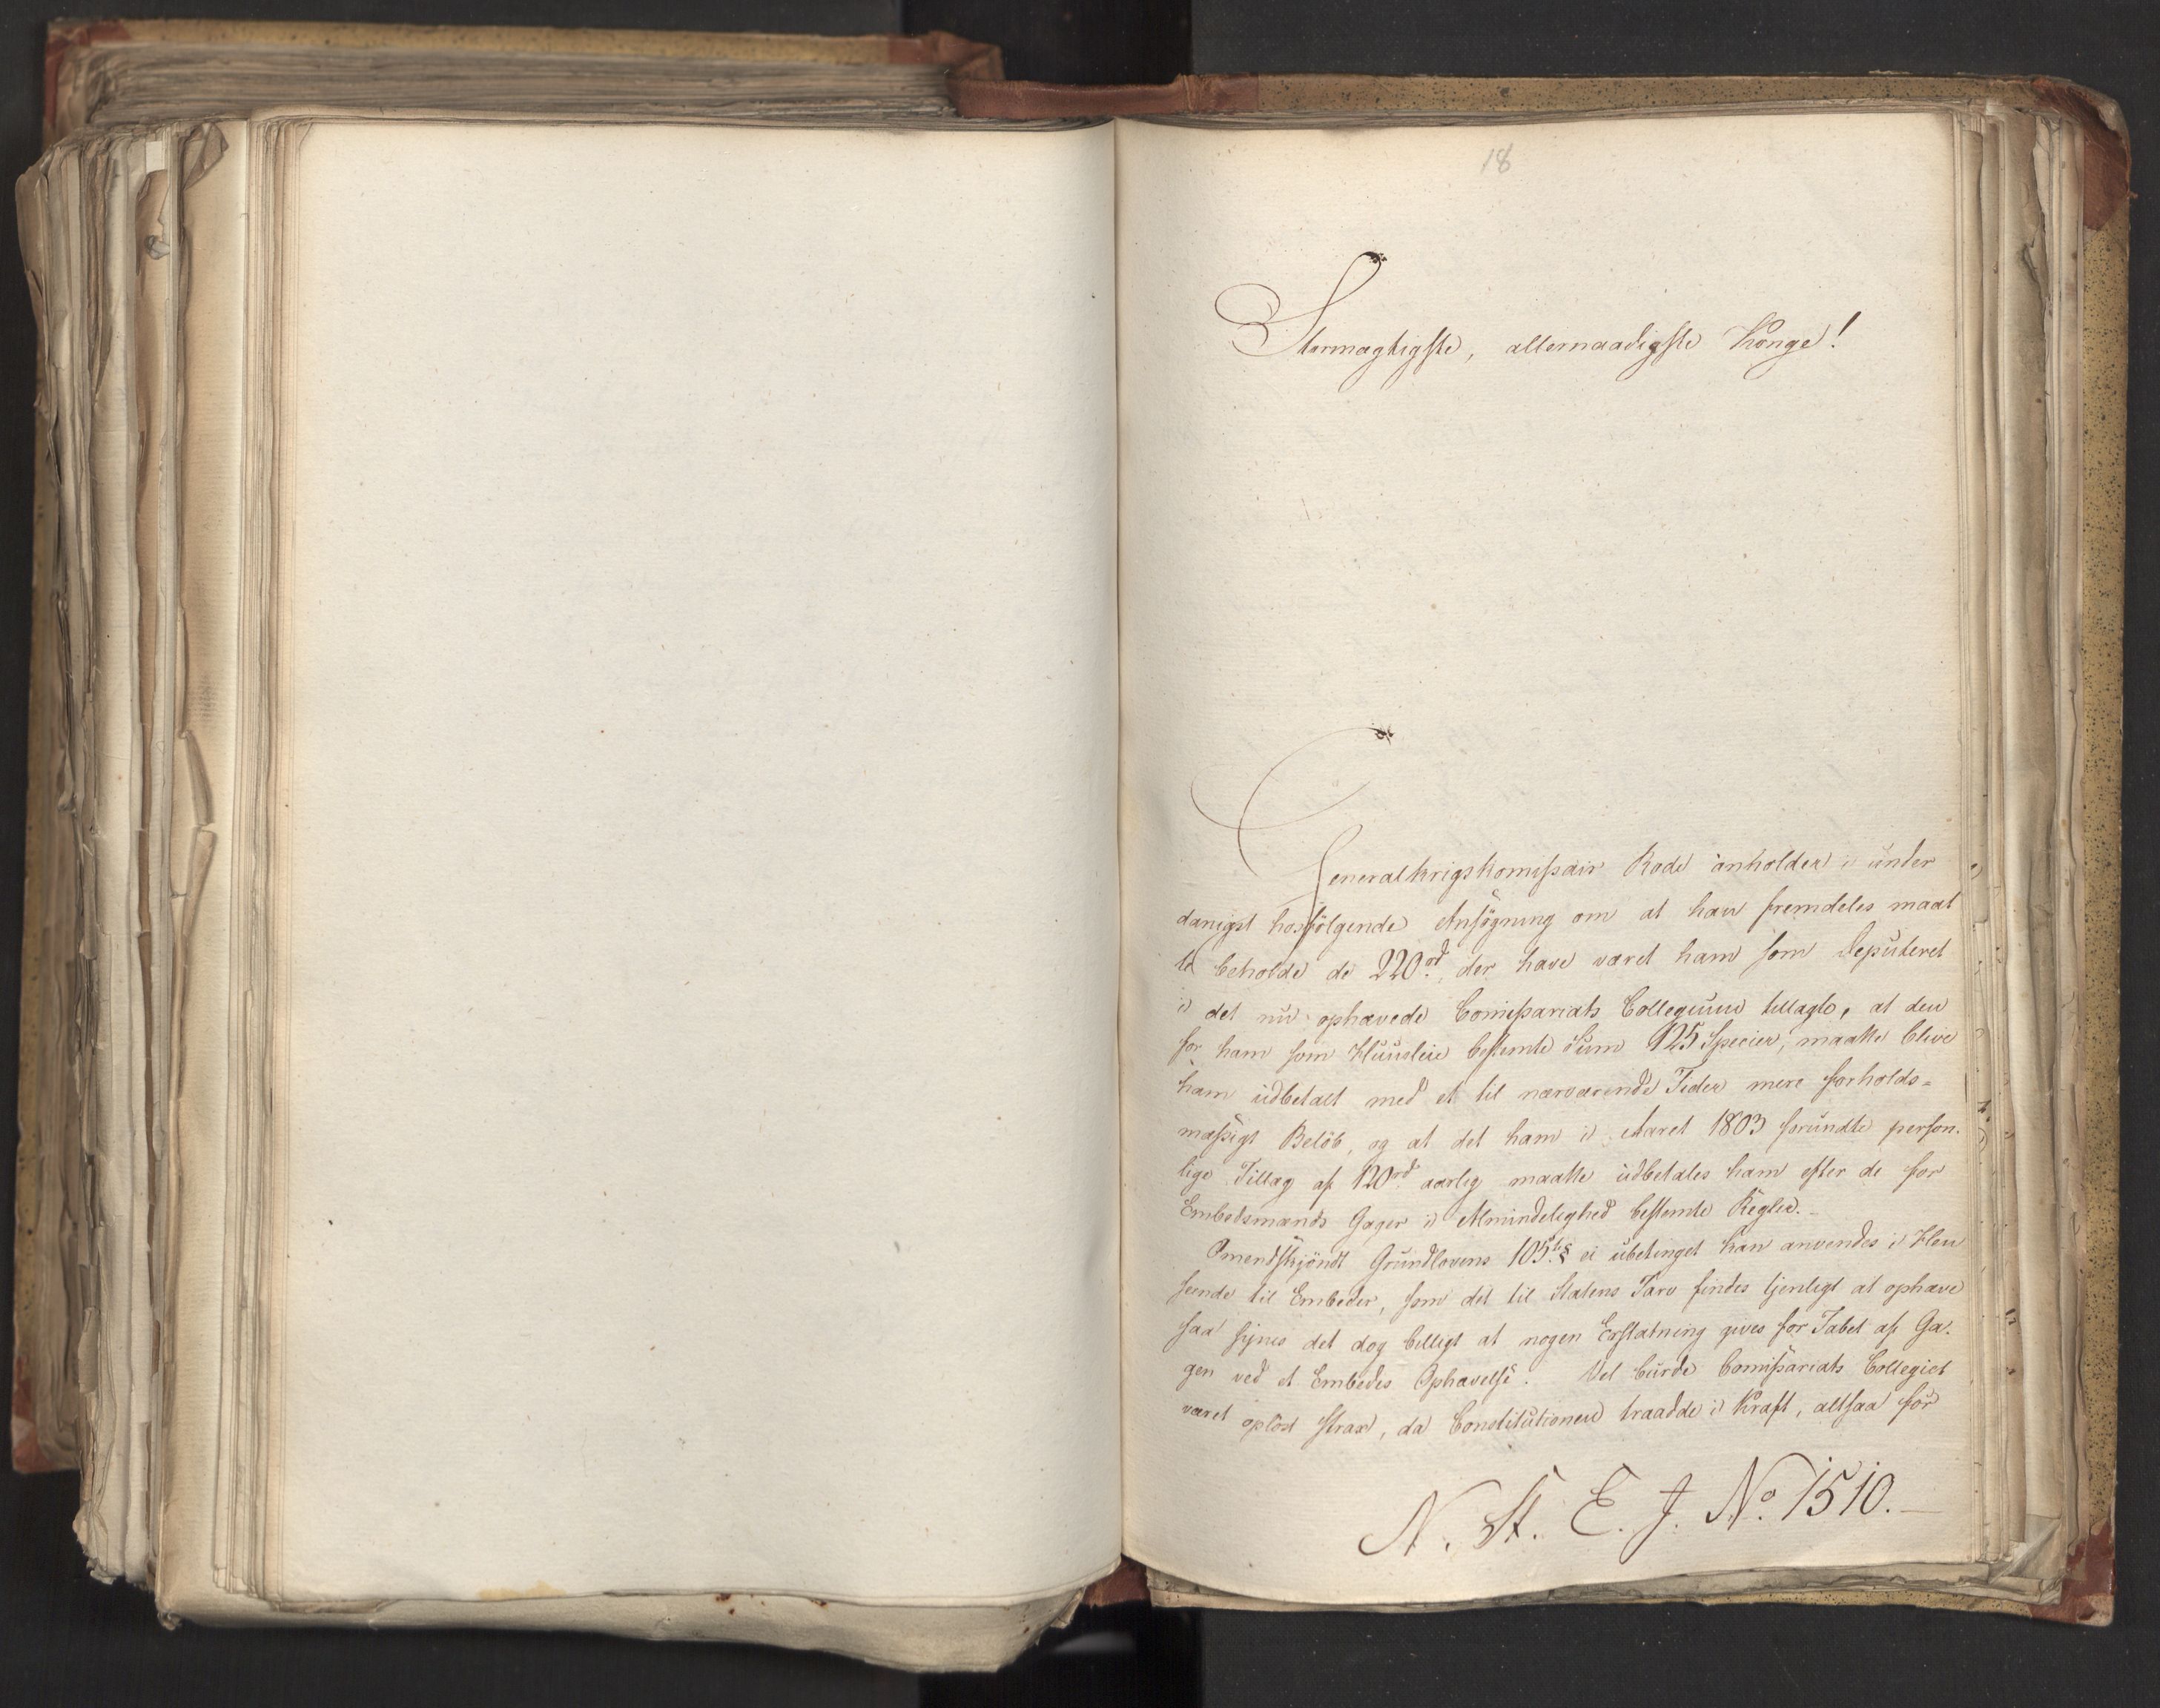 18
Stormægtigste, allernaadigste Konge!
Generalkrigskomissair Rode anholder i under
danigst hosfölgende Ansögning om at han fremdeles maat
te beholde de 220rd, der have været ham som Deputeret
i det nu ophævede Comissariats Collegium tillagte, at den
for ham som Huusleie bestemte Sum 125 Species, maatte blive
ham udbetalt med et til nærværende Tider mere forholds=
mæssigt Belöb, og at det ham i Aaret 1803 forundte person-
lige Tillæg af 120rd aarlig maatte udbetales ham efter de for
Embedsmænds Gager i Almindelighed bestemte Regler.
Omendskjöndt Grundlovens 105te § ei ubetinget kan anvendes i Hen
seende til Embeder, som det til Statens Tarv findes tjenligt at ophæve
saa synes det dog billigt at nogen Erstatning gives for Tabet af Ga-
gen ved et Embedes Ophævelse. Vel burde Comissariats Collegiet
været oplöst strax, da Constitutionen traadde i Kraft, altsaa för
N. St. E. J. No. 1510.